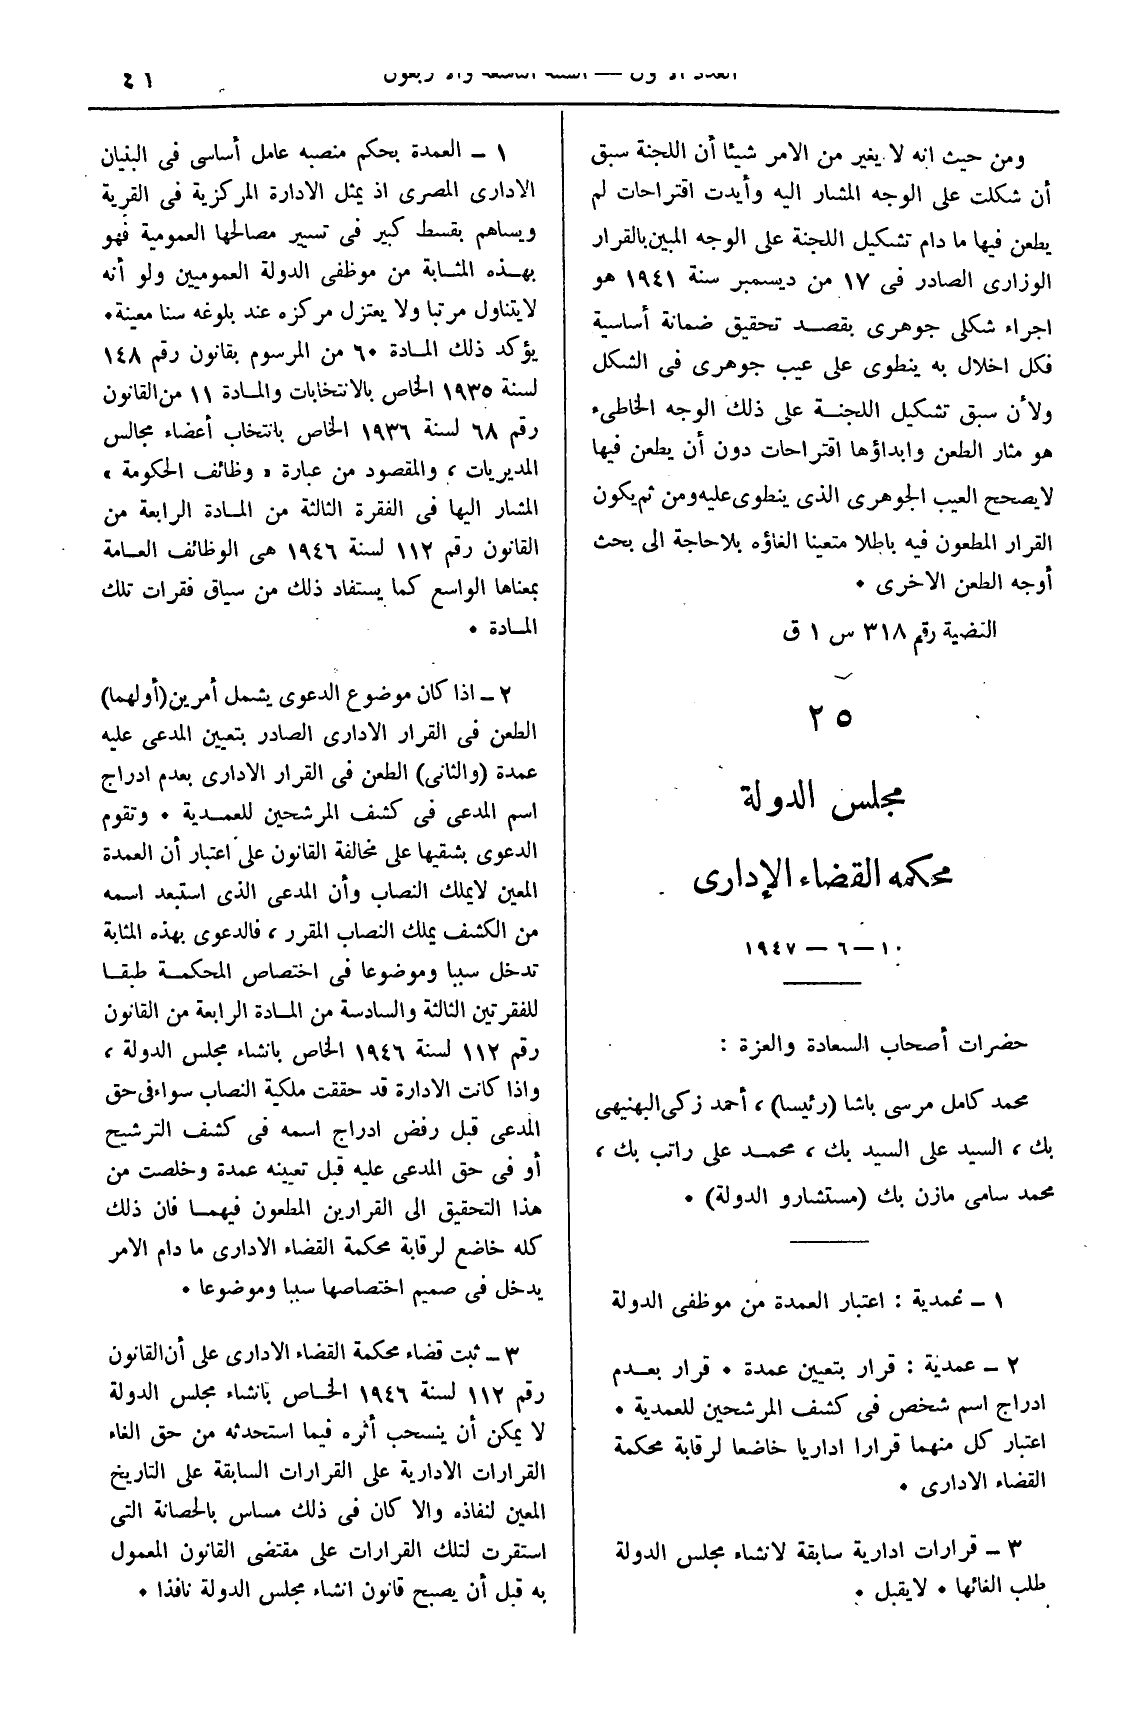 العدد الأول — السنة التاسعة والأربعون
٤١
ومن حيث انه لا يغير من الامر شيئا أن اللجنة سبق
أن شكلت على الوجه المشار اليه وأيدت اقتراحات لم
يطعن فيها ما دام تشكيل اللجنة على الوجه المبين بالقرار
الوزارى الصادر فى ١٧ من ديسمبر سنة ١٩٤١ هو
اجراء شكلى جوهرى بقصد تحقيق ضمانة أساسية
فكل اخلال به ينطوى على عيب جوهرى فى الشكل
ولأن سبق تشكيل اللجنة على ذلك الوجه الخاطىء
هو مثار الطعن وابداؤها اقتراحات دون أن يطعن فيها
لا يصحح العيب الجوهرى الذى ينطوى عليه ومن ثم يكون
القرار المطعون فيه باطلا متعينا الغاؤه بلا حاجة الى بحث
أوجه الطعن الاخرى ٠
القضية رقم ٣١٨ س ١ ق
٢٥
مجلس الدولة
محكمه القضاء الإدارى
١٠ — ٦ — ١٩٤٧
حضرات أصحاب السعادة والعزة :
محمد كامل مرسى باشا (رئيسا) ، أحمد زكى البهنيهى
بك ، السيد على السيد بك ، محمد على راتب بك ،
محمد سامى مازن بك (مستشارو الدولة) ٠
١ ـ عمدية : اعتبار العمدة من موظفى الدولة
٢ ـ عمدية : قرار بتعيين عمدة ٠ قرار بعدم
ادراج اسم شخص فى كشف المرشحين للعمدية ٠
اعتبار كل منهما قرارا اداريا خاضعا لرقابة محكمة
القضاء الادارى ٠
٣ ـ قرارات ادارية سابقة لانشاء مجلس الدولة
طلب الغائها ٠ لا يقبل ٠
١ ـ العمدة بحكم منصبه عامل أساسى فى البنيان
الادارى المصرى اذ يمثل الادارة المركزية فى القرية
ويساهم بقسط كبير فى تسيير مصالحها العمومية فهو
بهذه المثابة من موظفى الدولة العموميين ولو أنه
لا يتناول مرتبا ولا يعتزل مركزه عند بلوغه سنا معينة٠
يؤكد ذلك المادة ٦٠ من المرسوم بقانون رقم ١٤٨
لسنة ١٩٣٥ الخاص بالانتخابات والمادة ١١ من القانون
رقم ٦٨ لسنة ١٩٣٦ الخاص بانتخاب أعضاء مجالس
المديريات ، والمقصود من عبارة « وظائف الحكومة »
المشار اليها فى الفقرة الثالثة من المادة الرابعة من
القانون رقم ١١٢ لسنة ١٩٤٦ هى الوظائف العامة
بمعناها الواسع كما يستفاد ذلك من سياق فقرات تلك
المادة ٠
٢ ـ اذا كان موضوع الدعوى يشمل أمرين (أولهما)
الطعن فى القرار الادارى الصادر بتعيين المدعى عليه
عمدة (والثانى) الطعن فى القرار الادارى بعدم ادراج
اسم المدعى فى كشف المرشحين للعمدية ٠ وتقوم
الدعوى بشقيها على مخالفة القانون على اعتبار أن العمدة
المعين لا يملك النصاب وأن المدعى الذى استبعد اسمه
من الكشف يملك النصاب المقرر ، فالدعوى بهذه المثابة
تدخل سببا وموضوعا فى اختصاص المحكمة طبقا
للفقرتين الثالثة والسادسة من المادة الرابعة من القانون
رقم ١١٢ لسنة ١٩٤٦ الخاص بانشاء مجلس الدولة ،
واذا كانت الادارة قد حققت ملكية النصاب سواء فى حق
المدعى قبل رفض ادراج اسمه فى كشف الترشيح
أو فى حق المدعى عليه قبل تعيينه عمدة وخلصت من
هذا التحقيق الى القرارين المطعون فيهما فان ذلك
كله خاضع لرقابة محكمة القضاء الادارى ما دام الامر
يدخل فى صميم اختصاصها سببا وموضوعا ٠
٣ ـ ثبت قضاء محكمة القضاء الادارى على أن القانون
رقم ١١٢ لسنة ١٩٤٦ الخاص بانشاء مجلس الدولة
لا يمكن أن ينسحب أثره فيما استحدثه من حق الغاء
القرارات الادارية على القرارات السابقة على التاريخ
المعين لنفاذه والا كان فى ذلك مساس بالحصانة التى
استقرت لتلك القرارات على مقتضى القانون المعمول
به قبل أن يصبح قانون انشاء مجلس الدولة نافذا ٠